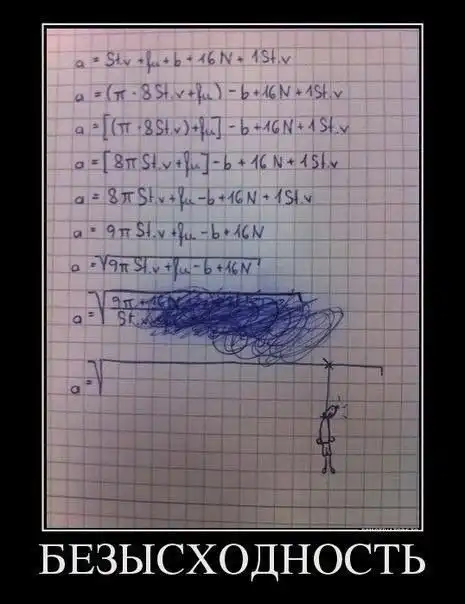 a = St.v + fμ + b + 16N + 1St.v
a = (π · 8St.v + fμ) - b + 16N + 1St.v
a = [(π · 8St.v) + fμ] - b + 16N + 1St.v
a = [8π St.v + fμ] - b + 16N + 1St.v
a = 8π St.v + fμ - b + 16N + 1St.v
a = 9π St.v + fμ - b + 16N
a = √9π St.v + fμ - b + 16N
a = √9π + 16N
St.v
a = √
БЕЗЫСХОДНОСТЬ